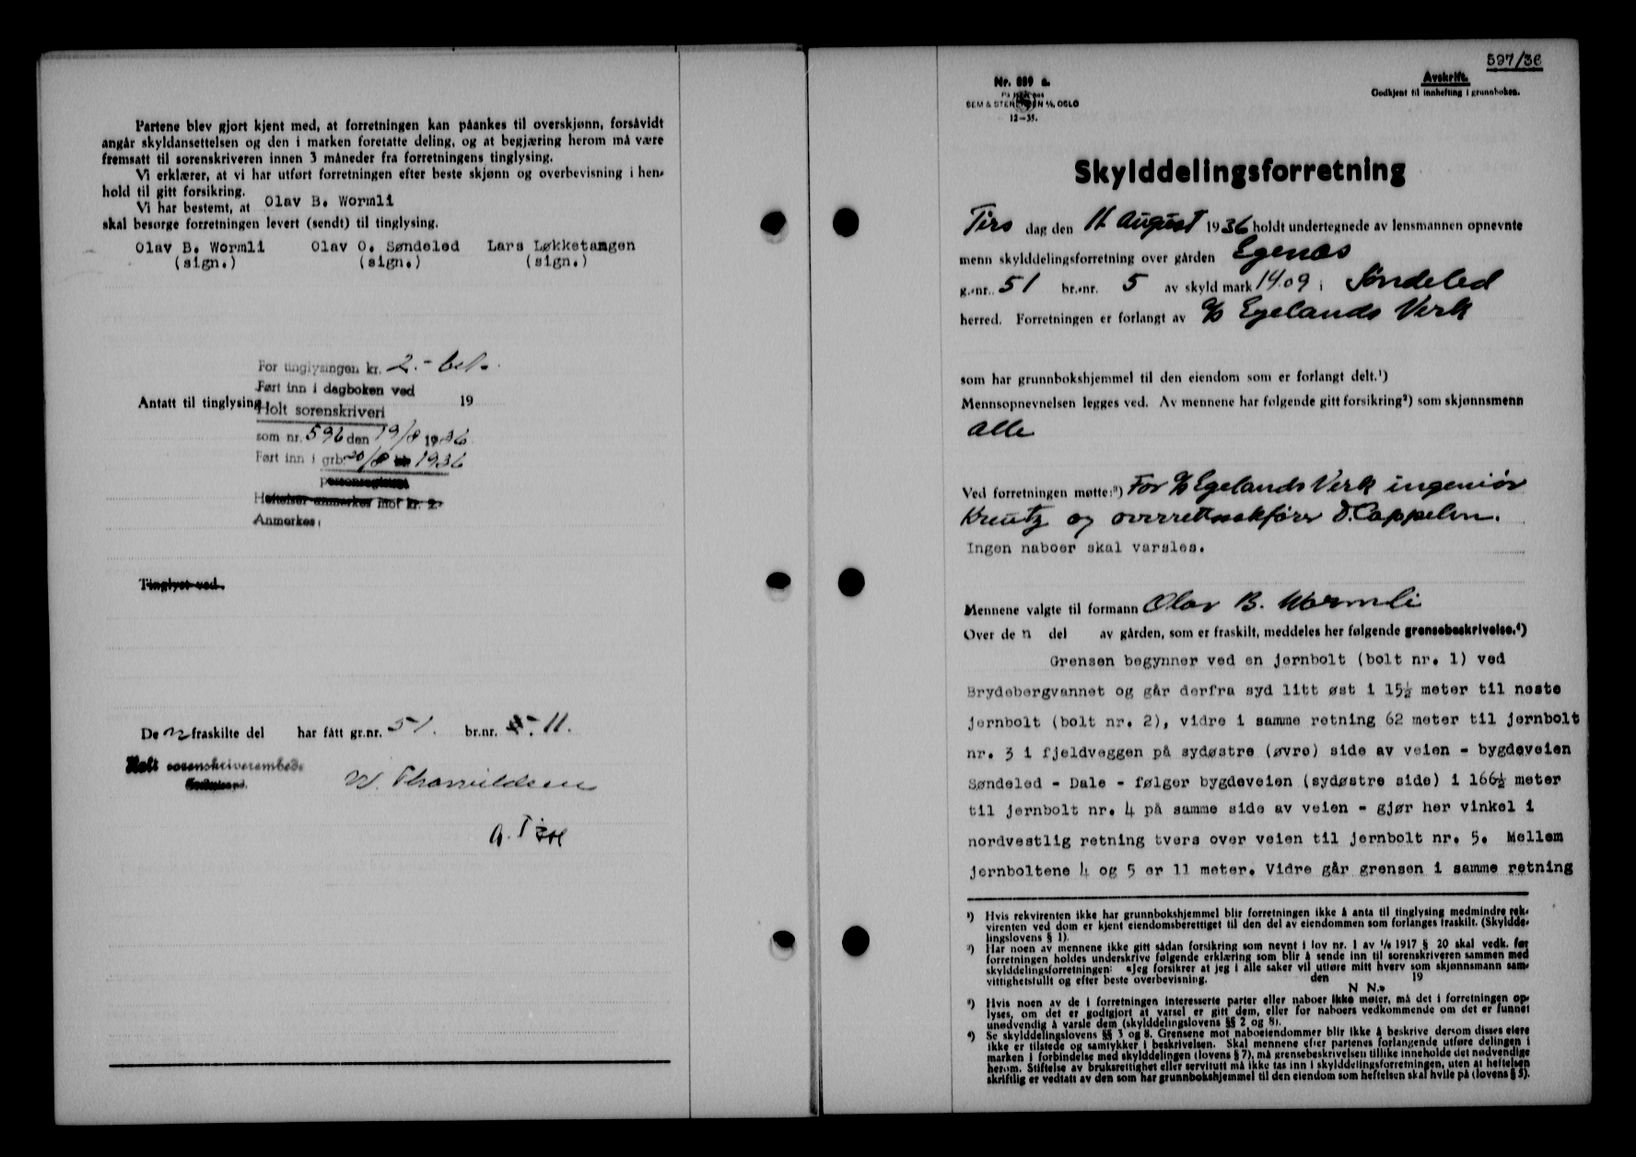 Partene blev gjort kjent med, at forretningen kan påankes til overskjønn, forsåvidt
angår skyldansettelsen og den i marken foretatte deling, og at begjæring herom må være
fremsatt til sorenskriveren innen 3 måneder fra forretningens tinglysing.
Vi erklærer, at vi har utført forretningen efter beste skjønn og overbevisning i hen-
hold til gitt forsikring.
Vi har bestemt, at Olav B. Wormli
skal besørge forretningen levert (sendt) til tinglysing.
Olav B. Wormli Olav O. Søndeled Lars Løkketangen
(sign.) (sign.) (sign.)
For tinglysingen kr. 2.- bet.
Ført inn i dagboken ved
Antatt til tinglysing 19
Holt sorenskriveri
som nr. 596 den 19/8 1936
Ført inn i grb. 20/8 1936
personregistret
Heftelser anmerket mot kr. 2.
Anmerkes:
Tinglyst ved.
De n fraskilte del har fått gr.nr. 51. br.nr. 11.
Holt sorenskriverembede
W. Thorvildsen
597/36
Nr. 889 a.
SEM & STENERSEN A/S, OSLO
12-35.
Avskrift.
Godkjent til innhefting i grunnboken.
Skylddelingsforretning
Tirs dag den 11 August 1936 holdt undertegnede av lensmannen opnevnte
menn skylddelingsforretning over gården Egenes
g.-nr. 51 br.-nr. 5 av skyld mark 14.09 i Søndeled
herred. Forretningen er forlangt av A/S Egelands Verk
som har grunnbokshjemmel til den eiendom som er forlangt delt.¹)
Mennsopnevnelsen legges ved. Av mennene har følgende gitt forsikring²) som skjønnsmenn
alle
Ved forretningen møtte:³) For A/S Egelands Verk ingeniør
Kreutz og overrettssakfører D. Cappelen.
Ingen naboer skal varsles.
Mennene valgte til formann Olav B. Wormli
Over de n del av gården, som er fraskilt, meddeles her følgende grensebeskrivelse.⁴)
Grensen begynner ved en jernbolt (bolt nr. 1) ved
Brydebergvannet og går derfra syd litt øst i 15½ meter til neste
jernbolt (bolt nr. 2), vidre i samme retning 62 meter til jernbolt
nr. 3 i fjeldveggen på sydøstre (øvre) side av veien - bygdeveien
Søndeled - Dale - følger bygdeveien (sydøstre side) i 166½ meter
til jernbolt nr. 4 på samme side av veien - gjør her vinkel i
nordvestlig retning tvers over veien til jernbolt nr. 5. Mellem
jernboltene 4 og 5 er 11 meter. Vidre går grensen i samme retning
¹) Hvis rekvirenten ikke har grunnbokshjemmel blir forretningen ikke å anta til tinglysing medmindre rek-
virenten ved dom er kjent eiendomsberettiget til den del av eiendommen som forlanges fraskilt. (Skyldde-
lingslovens § 1).
²) Har noen av mennene ikke gitt sådan forsikring som nevnt i lov nr. 1 av 1/6 1917 § 20 skal vedk. før
forretningen holdes underskrive følgende erklæring som blir å sende inn til sorenskriveren sammen med
skylddelingsforretningen: «Jeg forsikrer at jeg i alle saker vil utføre mitt hverv som skjønnsmann sam-
vittighetsfullt og efter beste overbevisning. den 19
N N.»
³) Hvis noen av de i forretningen interesserte parter eller naboer ikke møter, må det i forretningen op-
lyses, om det er godtgjort at varsel er gitt dem, eller for naboers vedkommende om det er funnet
unødvendig å varsle dem (skylddelingslovens §§ 2 og 8).
⁴) Se skylddelingslovens §§ 3 og 8. Grensene mot naboeiendommer blir ikke å beskrive dersom disses eiere
ikke er tilstede og samtykker i beskrivelsen. Skal mennene efter partenes forlangende utføre delingen i
marken i forbindelse med skylddelingen (lovens § 7), må grensebeskrivelsen tillike inneholde det nødvendige
herom. Stiftelse av bruksrettighet eller servitutt må ikke tas inn i skylddelingsforretningen, uten at heftelsen
skriftlig er vedtatt av den som har grunnbokshjemmel til den eiendom som heftelsen skal hvile på (lovens § 5).